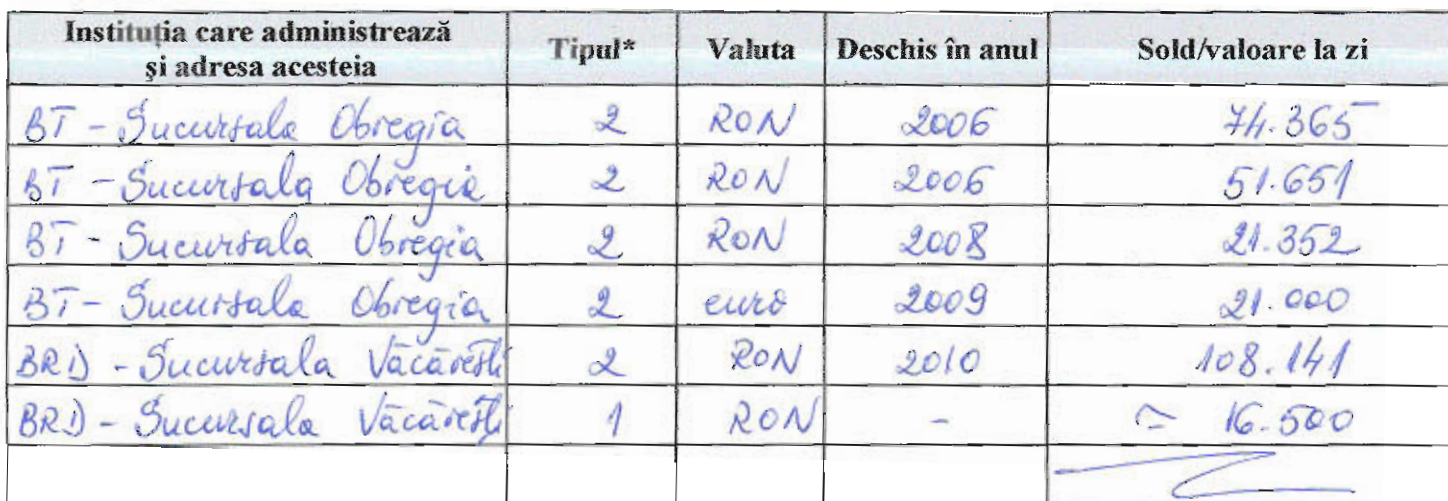 Instituția care administrează și adresa acesteia Tipul* Valuta Deschis în anul Sold/valoare la zi
BT - Sucursala Obregia 2 RON 2006 74.365
BT - Sucursala Obregia 2 RON 2006 51.651
BT - Sucursala Obregia 2 RON 2008 21.352
BT - Sucursala Obregia 2 euro 2009 21.000
BRD - Sucursala Văcărești 2 RON 2010 108.141
BRD - Sucursala Văcărești 1 RON - ≃ 16.500